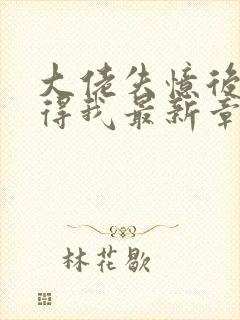 大佬失憶後
得我最新章
林花歇